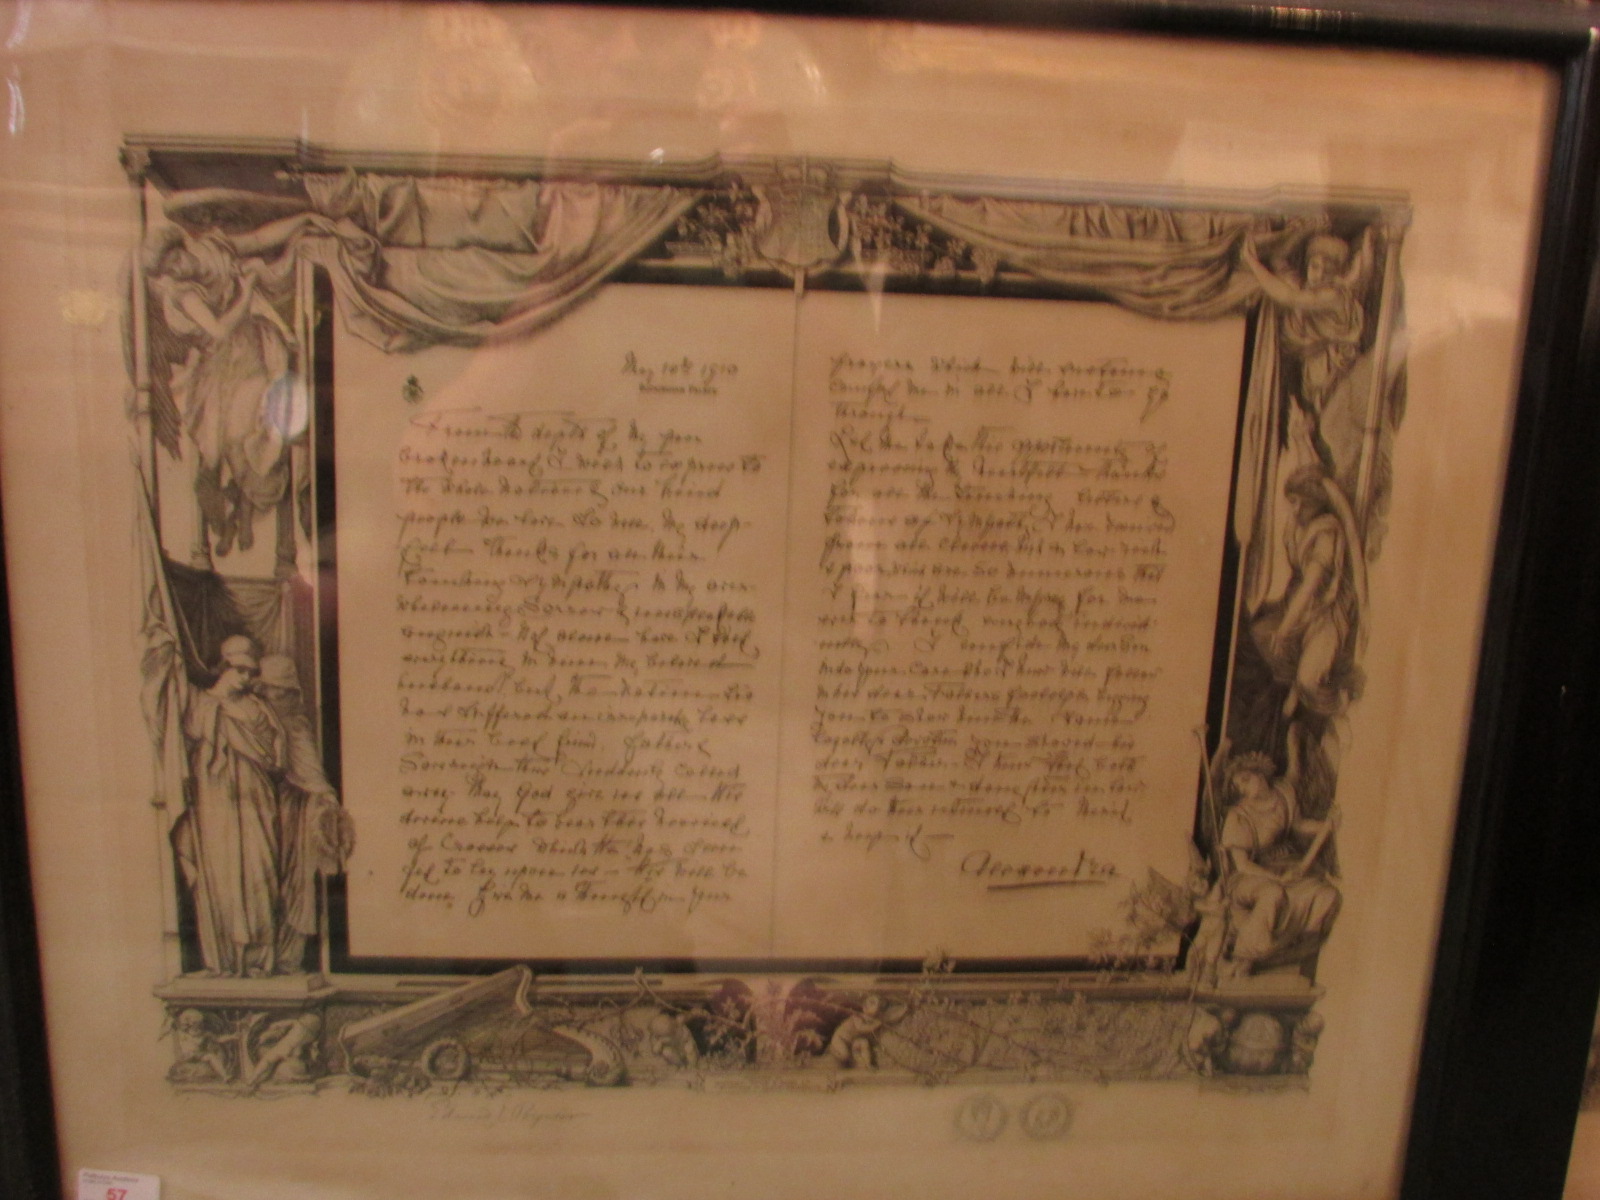 May 10th 1910
Buckingham Palace
From the depth of my poor
broken heart I wish to express to
the whole Nation & our kind
people we love so well, my deep-
felt thanks for all their
touching sympathy in my over-
whelming sorrow & unspeakable
anguish - Not alone have I lost
everything in him, my beloved
husband but, the nation too
have suffered an irreparable loss
in their best friend, father &
Sovereign thus suddenly called
away - May God give us all His
divine help to bear this heaviest
of Crosses which He has seen
fit to lay upon us - His will be
done. Give me a thought in your
prayers which will
comfort me in all I have to go
through.
Let me take this opportunity of
expressing my heartfelt thanks
for all the touching letters &
tokens of sympathy I have received
from all classes high & low, rich
& poor, which are so numerous that
I fear it will be impossible for me
ever to thank everybody individ-
ually. I confide my dear Son
into your care who I know will follow
in his dear Father's footsteps begging
you to show him the same
loyalty & devotion you showed his
dear Father - I know that both
my dear son & daughter in law
will do their utmost to merit
& keep it -
Alexandra
57